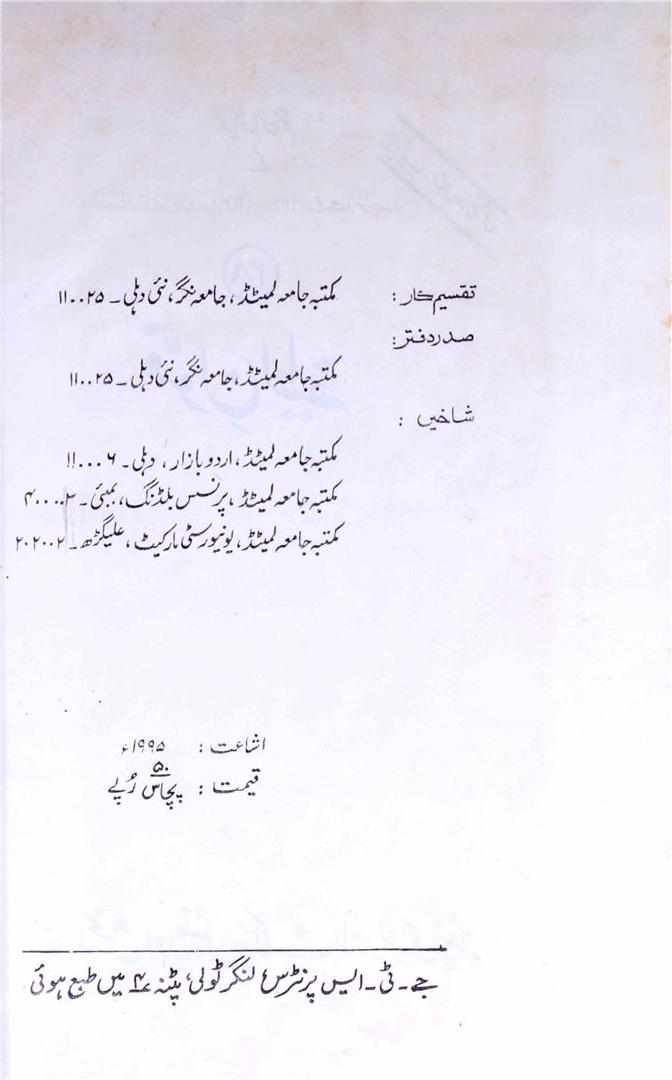 تقسیم کار: مکتبہ جامعہ لمیٹڈ، جامعہ نگر، نئی دہلی۔ ۱۱۰۰۲۵
صدر دفتر:
مکتبہ جامعہ لمیٹڈ، جامعہ نگر، نئی دہلی۔ ۱۱۰۰۲۵
شاخیں :
مکتبہ جامعہ لمیٹڈ، اردو بازار، دہلی۔ ۱۱۰۰۰۶
مکتبہ جامعہ لمیٹڈ، پرنسس بلڈنگ، بمبئی۔ ۴۰۰۰۰۳
مکتبہ جامعہ لمیٹڈ، یونیورسٹی مارکیٹ، علیگڑھ۔ ۲۰۲۰۰۲
اشاعت : ۱۹۹۵ء
۵۰
قیمت : پچاس رُپے
جے۔ ٹی۔ ایس پرنٹرس، لنگر ٹولی، پٹنہ ۴ میں طبع ہوئی